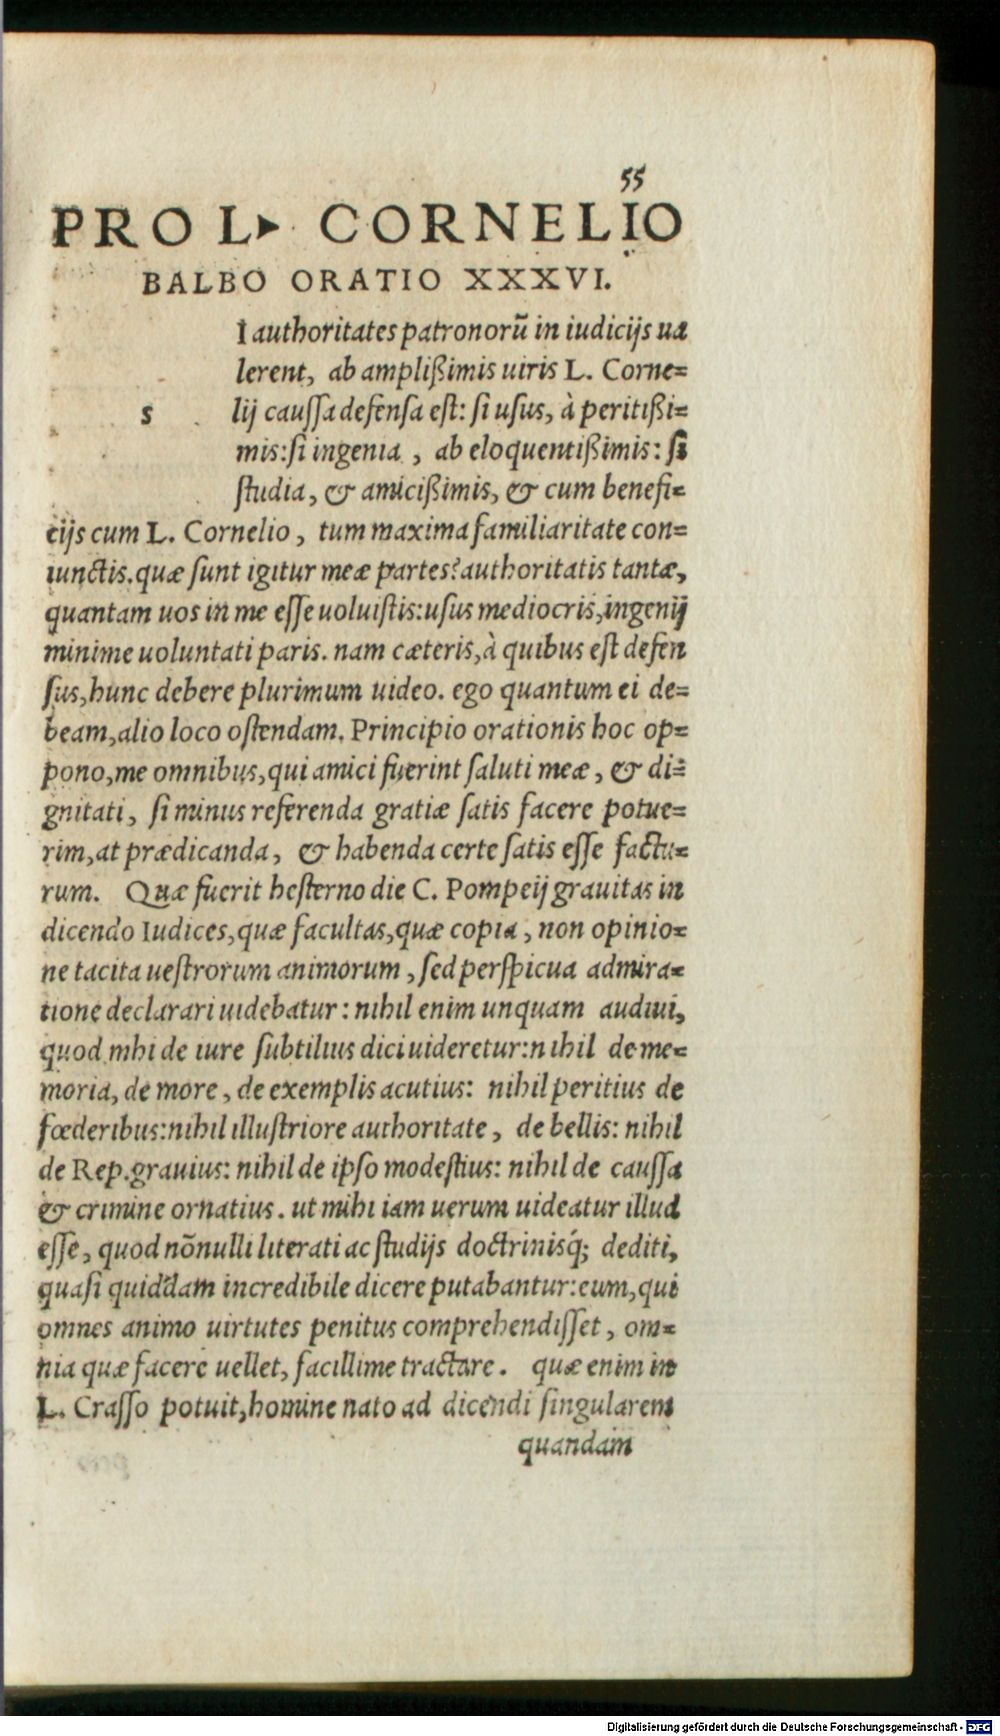 55
PRO L▸ CORNELIO
BALBO ORATIO XXXVI.
I authoritates patronorũ in iudicijs ua
lerent, ab ampliſsimis uiris L. Corne=
s lij cauſſa defenſa eſt: ſi uſus, à peritiſsi=
mis: ſi ingenia, ab eloquentiſsimis: ſi
ſtudia, & amiciſsimis, & cum benefi=
cijs cum L. Cornelio, tum maxima familiaritate con=
iunctis. quæ ſunt igitur meæ partes? authoritatis tantæ,
quantam uos in me eſſe uoluiſtis: uſus mediocris, ingenij
minime uoluntati paris. nam cæteris, à quibus eſt defen
ſus, hunc debere plurimum uideo. ego quantum ei de=
beam, alio loco oſtendam. Principio orationis hoc op=
pono, me omnibus, qui amici fuerint ſaluti meæ, & di=
gnitati, ſi minus referenda gratiæ ſatis facere potue=
rim, at prædicanda, & habenda certe ſatis eſſe factu=
rum. Quæ fuerit heſterno die C. Pompeij grauitas in
dicendo Iudices, quæ facultas, quæ copia, non opinio=
ne tacita ueſtrorum animorum, ſed perſpicua admira=
tione declarari uidebatur: nihil enim unquam audiui,
quod mhi de iure ſubtilius dici uideretur: nihil de me=
moria, de more, de exemplis acutius: nihil peritius de
fœderibus: nihil illuſtriore authoritate, de bellis: nihil
de Rep. grauius: nihil de ipſo modeſtius: nihil de cauſſa
& crimine ornatius. ut mihi iam uerum uideatur illud
eſſe, quod nõnulli literati ac ſtudijs doctrinisq́; dediti,
quaſi quiddam incredibile dicere putabantur: eum, qui
omnes animo uirtutes penitus comprehendiſſet, om=
nia quæ facere uellet, facillime tractare. quæ enim in
L. Craſſo potuit, homine nato ad dicendi ſingularem
quandam
Digitalisierung gefördert durch die Deutsche Forschungsgemeinschaft - DFG